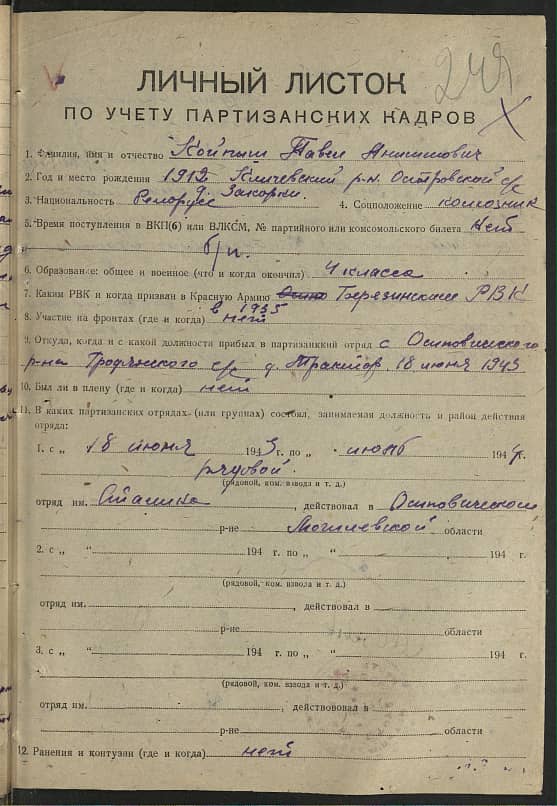 249
ЛИЧНЫЙ ЛИСТОК
ПО УЧЕТУ ПАРТИЗАНСКИХ КАДРОВ
1. Фамилия, имя и отчество Койпыш Павел Анимович
2. Год и место рождения 1912 Кличевский р-н. Островской с/с
д. Закорки.
3. Национальность Белорусс 4. Соцположение колхозник
5. Время поступления в ВКП(б) или ВЛКСМ, № партийного или комсомольского билета Нет
б/п.
6. Образование: общее и военное (что и когда окончил) 4 класса
7. Каким РВК и когда призван в Красную Армию Березинским РВК
в 1935
8. Участие на фронтах (где и когда) нет
9. Откуда, когда и с какой должности прибыл в партизанккий отряд с Осиповичского
р-на с/с д. Трактор 18 июня 1943
10. Был ли в плену (где и когда) нет
11. В каких партизанских отрядах (или группах) состоял, занимаемая должность и район действия
отряда:
1. с „ 18 июня 1943 г. по „ июнь 1944 г.
рядовой.
(рядовой, ком. взвода и т. д.)
отряд им. Сталина, действовал в Осиповическом
р-не Могилевской области
2. с „ “ 194 г. по „ “ 194 г.
(рядовой, ком. взвода и т. д.)
отряд им. , действовал в
р-не области
3. с „ “ 194 г. по „ “ 194 г.
(рядовой, ком. взвода и т. д.)
отряд им. , действововал в
р-не области
12. Ранения и контузии (где и когда) нет